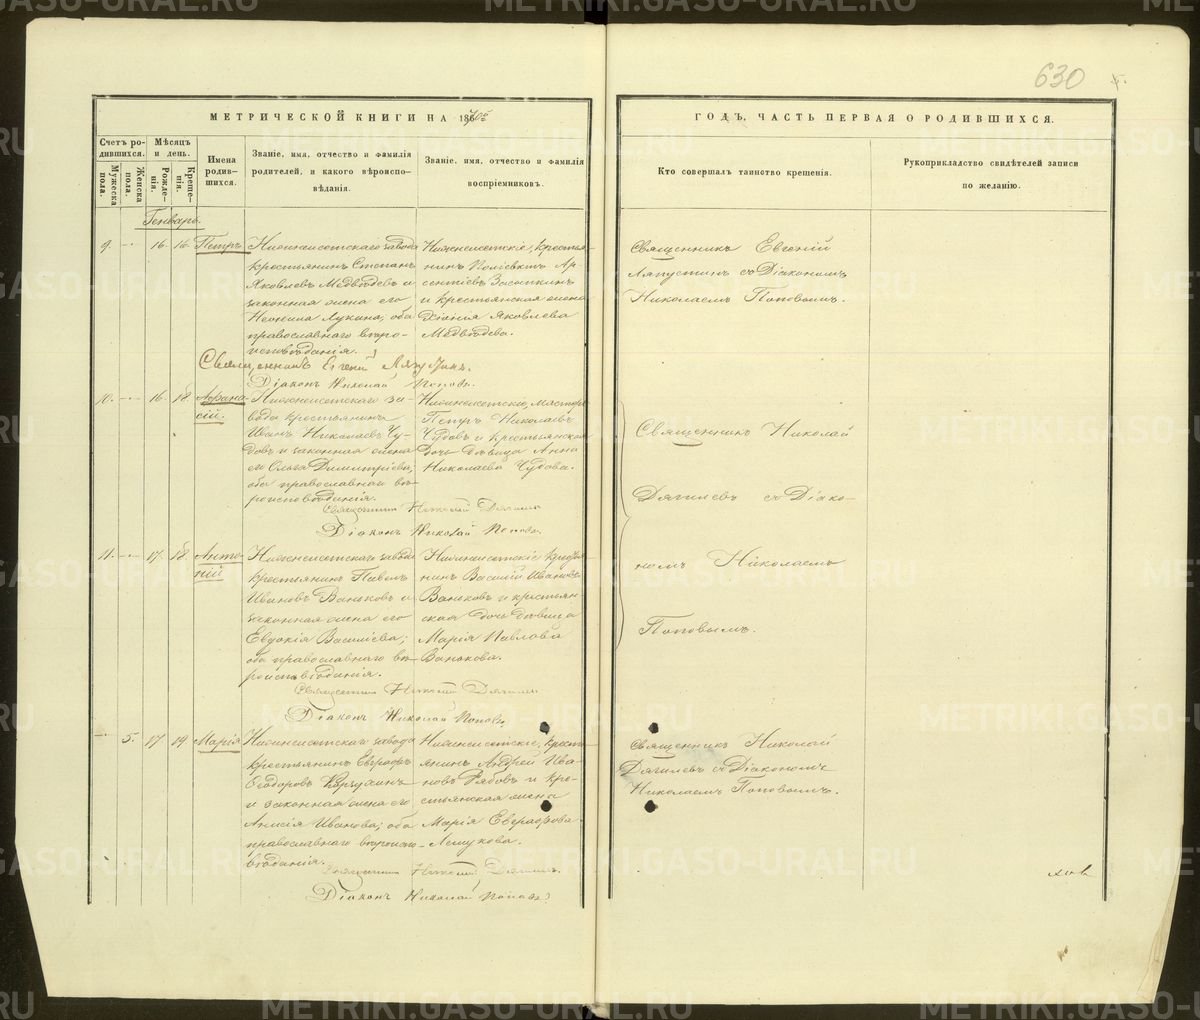 630
МЕТРИЧЕСКОЙ КНИГИ НА 1870й
ГОДЪ, ЧАСТЬ ПЕРВАЯ О РОДИВШИХСЯ.
Счетъ родившихся.
Мужеска пола.
Женска пола.
Мѣсяцъ и день.
Рожденія.
Крещенія.
Имена родившихся.
Званіе, имя, отчество и фамилія родителей, и какого вѣроисповѣданія.
Званіе, имя, отчество и фамилія воспріемниковъ.
Кто совершалъ таинство крещенія.
Рукоприкладство свидѣтелей записи по желанію.
Генварь.
9. 16 16 Петръ
Нижнеисетскаго завода
крестьянинъ Степанъ
Яковлевъ Медвѣдевъ и
законная жена его
Неонила Лукина, оба
православнаго вѣро-
исповѣданія.
Нижнеисетскіе, крестья-
нинъ Поліевктъ Ар-
сентіевъ Засыпкинъ
и крестьянская жена
Хіонія Яковлева
Медвѣдева.
Священникъ Евгеній
Ляпустинъ съ Діакономъ
Николаемъ Поповымъ.
Священникъ Евгеній Ляпустинъ.
Діаконъ Николай Поповъ.
10. 16 18 Афана-
сій.
Нижнеисетскаго за-
вода крестьянинъ
Иванъ Николаевъ Чу-
довъ и законная жена
его Ольга Димитріева,
оба православнаго вѣ-
роисповѣданія.
Нижнеисетскіе, мастеръ
Петръ Николаевъ
Чудовъ и крестьянская
дочь дѣвица Анна
Николаева Чудова.
Священникъ Николай
Дягилевъ съ Діако-
номъ Николаемъ
Поповымъ.
Священникъ Николай Дягилевъ
Діаконъ Николай Поповъ.
11. 17 18 Анто-
ній
Нижнеисетскаго завода
крестьянинъ Павелъ
Ивановъ Ваньковъ и
законная жена его
Евдокія Васильева;
оба православнаго вѣ-
роисповѣданія.
Нижнеисетскіе крестья-
нинъ Василій Ивановъ
Ваньковъ и крестьян-
ская дочь дѣвица
Марія Павлова
Ванькова.
Священникъ Николай Дягилевъ
Діаконъ Николай Поповъ.
5. 17 19 Марія
Нижнеисетскаго завода
крестьянинъ Евграфъ
Ѳеодоровъ
и законная жена его
Анисія Иванова; оба
православнаго вѣроиспо-
вѣданія.
Нижнеисетскіе, кресть-
янинъ Андрей Ива-
новъ Рябовъ и кре-
стьянская жена
Марія Евграфова
Священникъ Николай
Дягилевъ съ Діакономъ
Николаемъ Поповымъ.
Священникъ Николай Дягилевъ.
Діаконъ Николай Поповъ
METRIKI.GASO-URAL.RU